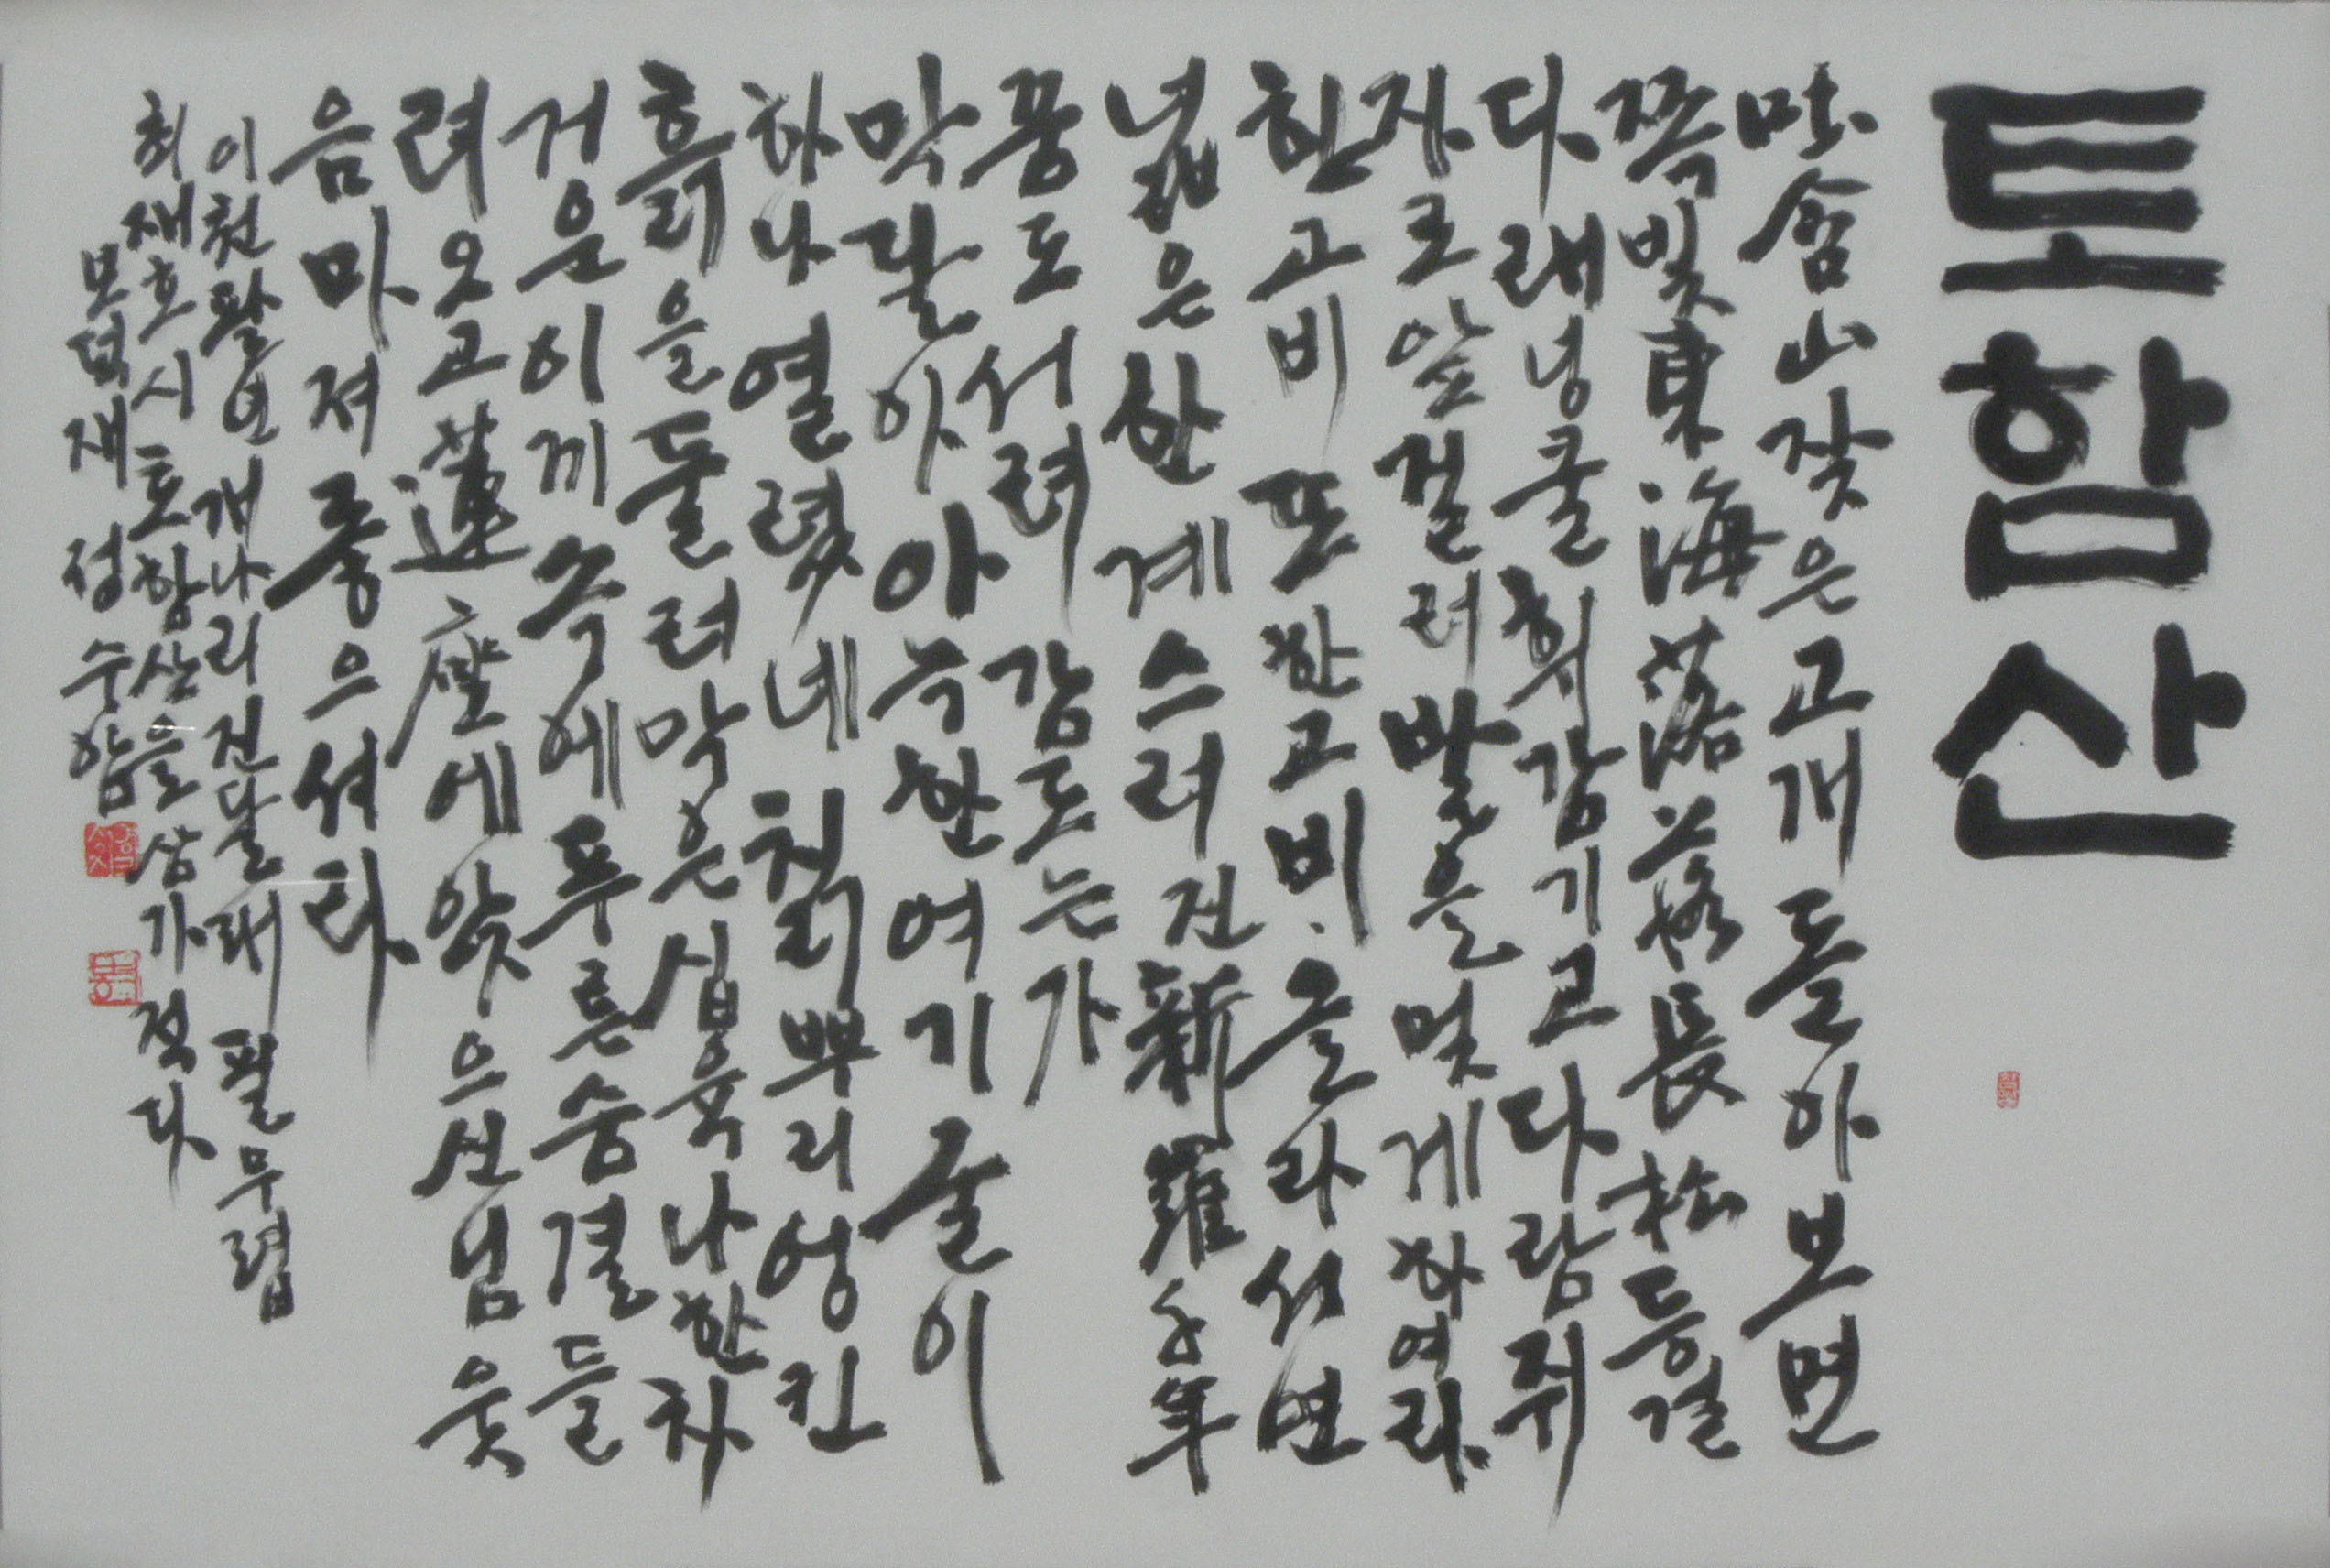 토함산
吐含山 잦은 고개 돌아보면
쪽빛 東海 落落長松 등걸
다래넝쿨 휘감기고 다람쥐
자로 앞 걸러 발을 멎게 하여라
한 고비 또 한 고비 올라서면
넓은 한계 스러진 新羅千年
꿈도 서려 감도는가
막달아 아늑한 여기 굴이
하나 열렸네 칡뿌리 엉킨
흙을 둘러막은 십육나한 차
거운 이끼 속에 푸른 숨결 들
려오고 蓮座에 앉으신 님 웃
음마저 좋으셔라
이천팔년 개나리 진달래 필 무렵
최재호 시 토함산을 삼가 적다
모덕재 정수암